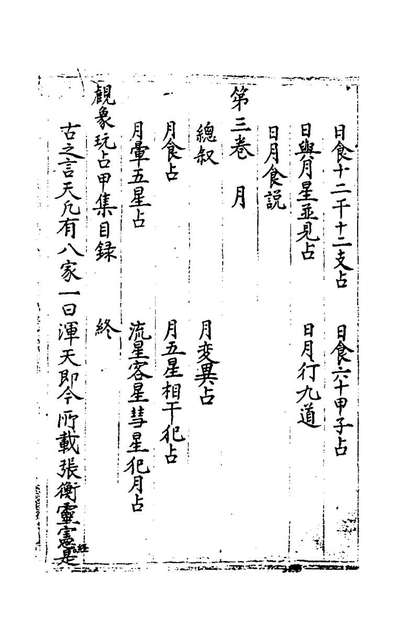 日食十二干十二支占　日食六十甲子占
日與月星並見占　日月行九道
日月食説
第三卷　月
總叙　月变異占
月食占　月五星相干犯占
月暈五星占　流星客星彗星犯月占
觀象玩占甲集目録　終
古之言天凡有八家一曰渾天即今所載張衡靈憲是